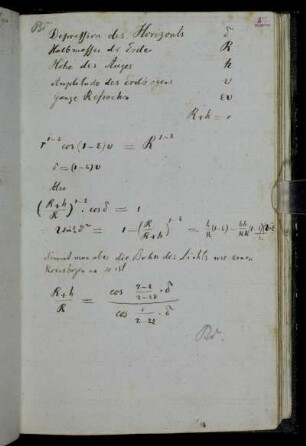 Br.
Depression des Horizonts δ
Halbmesser der Erde R
Höhe des Auges h
Amplitudo des Erdbogens v
ganze Refraction εv
R+h = r
r^{1-ε} cos(1-ε)v = R^{1-ε}
δ = (1-ε)v
Also
(\frac{R+h}{R})^{1-ε} cos δ = 1
= 1 - (\frac{R}{R+h})^{1-ε} = \frac{h}{R}(1-ε) -
Nimmt man aber die Bahn des Lichts wie einen
Kreisbogen an so ist
\frac{R+h}{R} = \frac{cos \frac{2-ε}{2-2ε} · δ}{cos \frac{ε}{2-2ε} · δ}
Br.